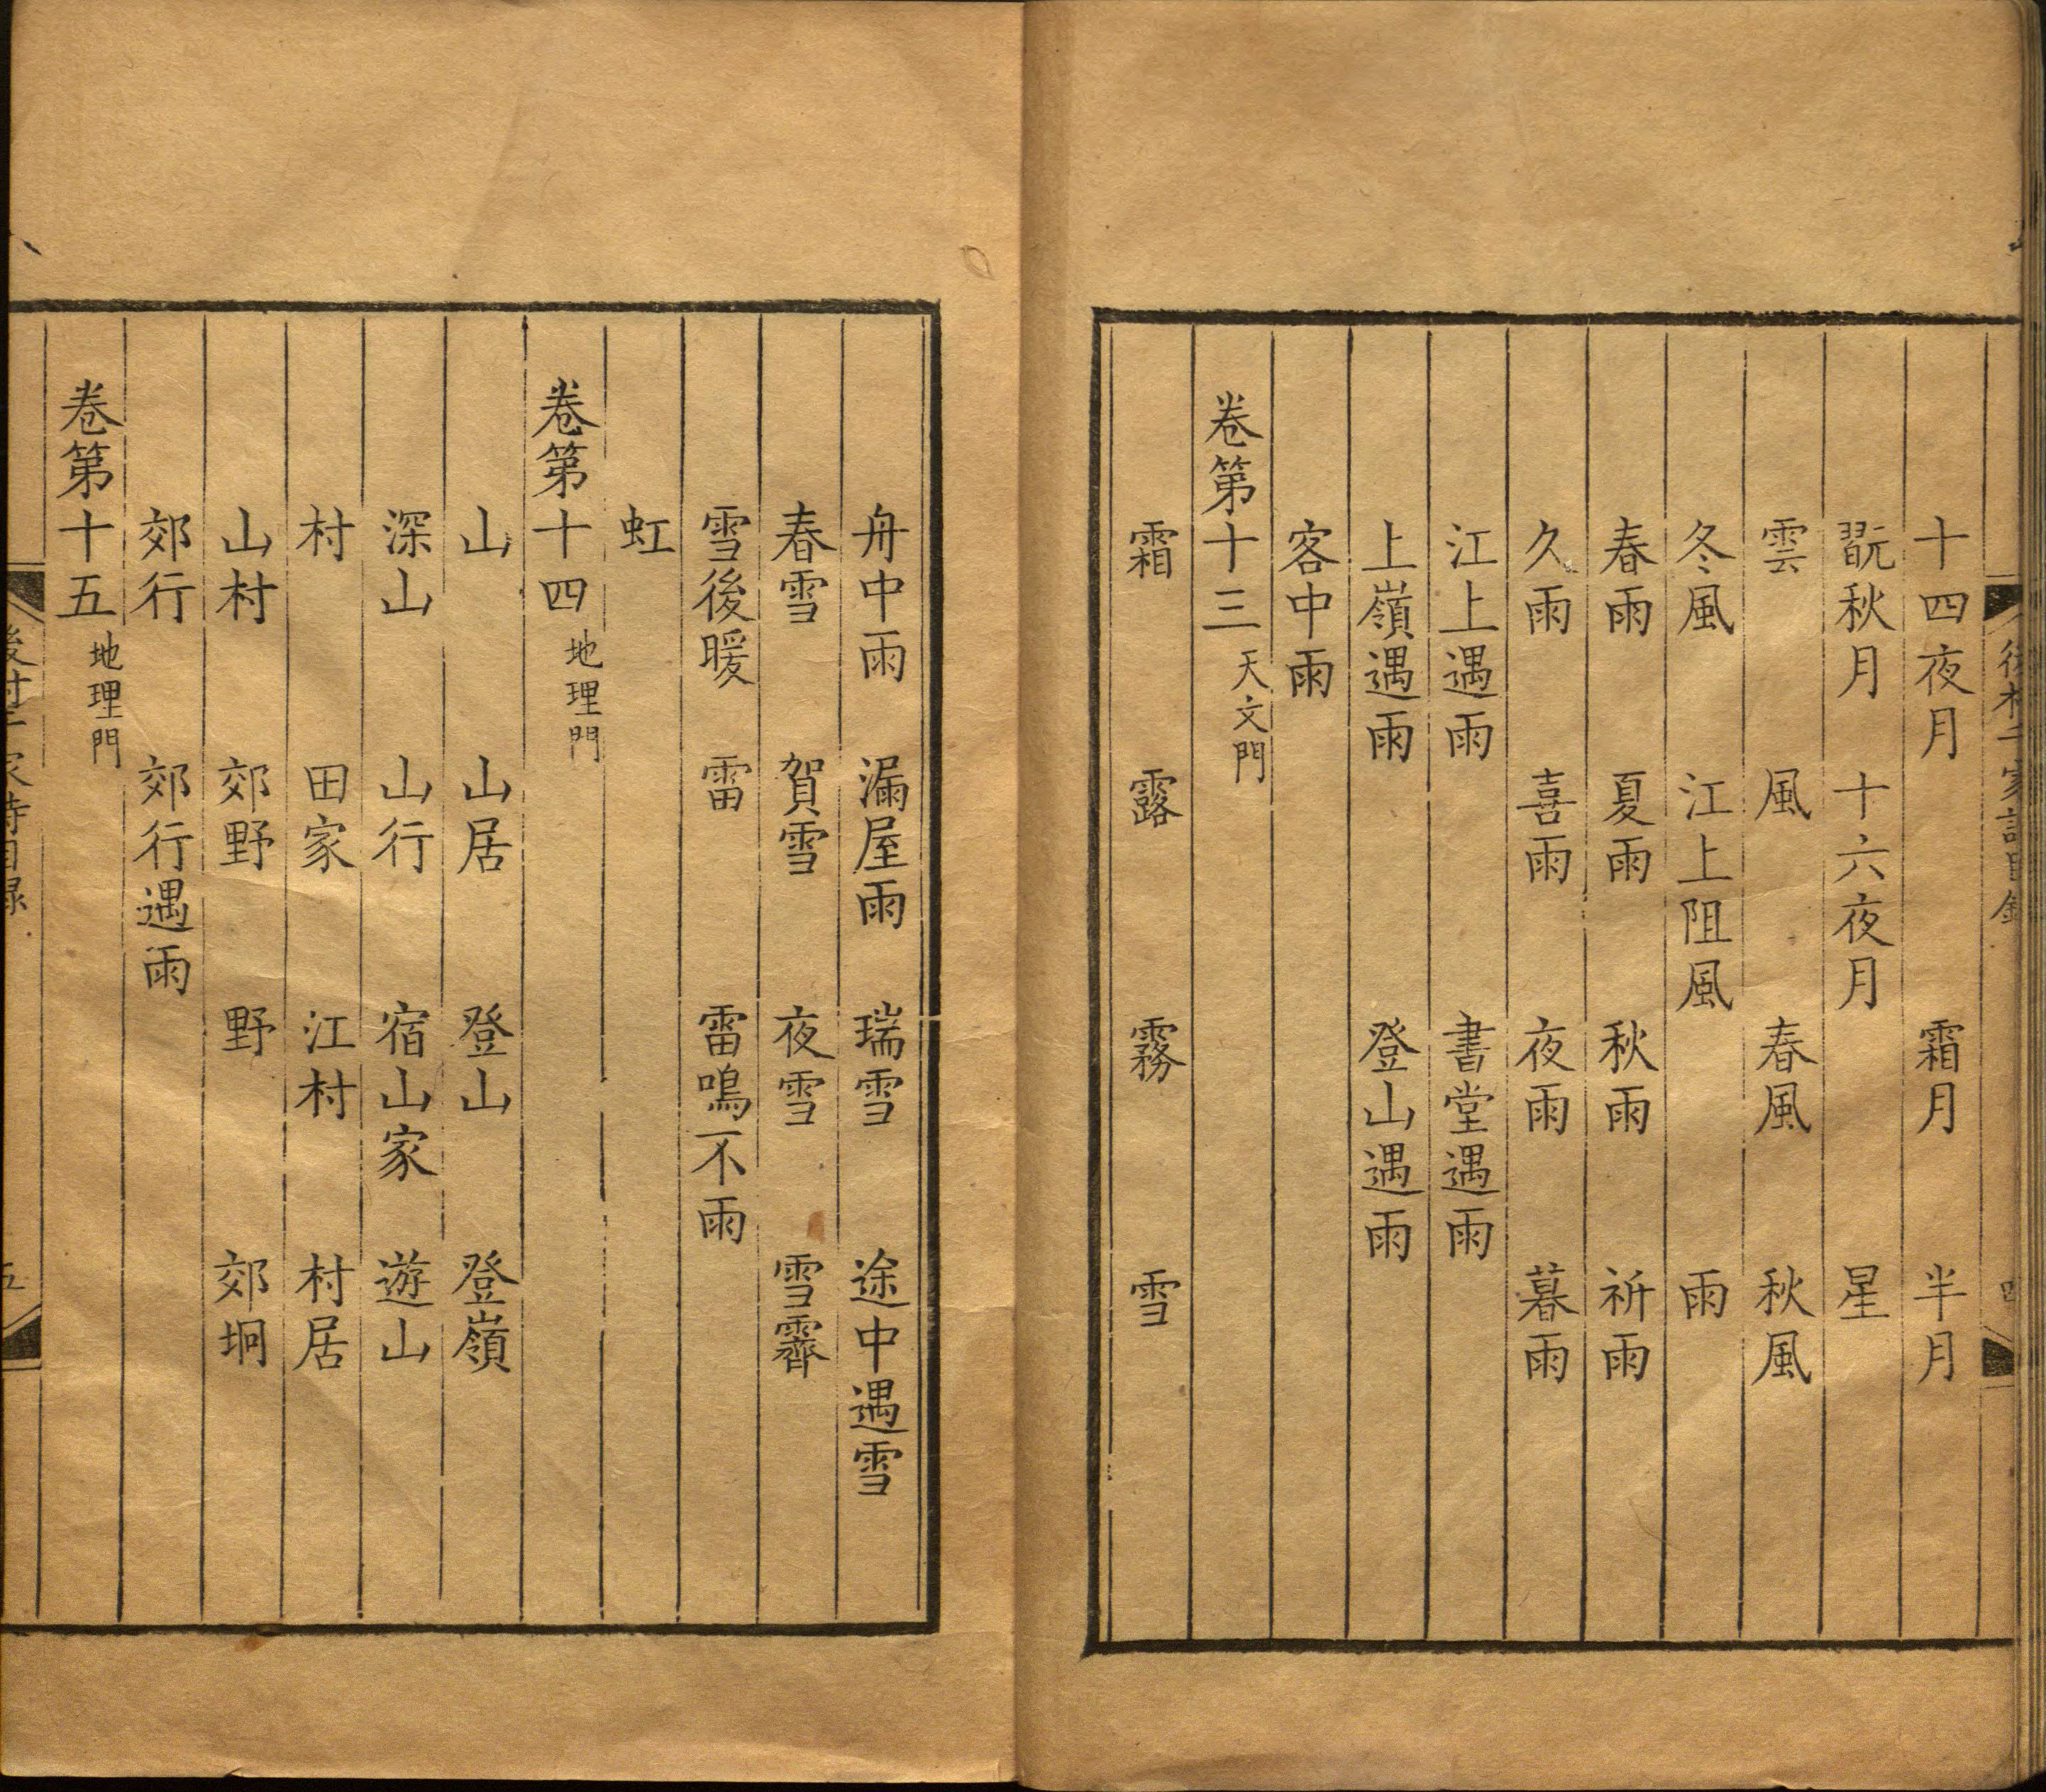 後村千家詩目錄 四
十四夜月 霜月 半月
翫秋月 十六夜月 星
雲 風 春風 秋風
冬風 江上阻風 雨
春雨 夏雨 秋雨 祈雨
久雨 喜雨 夜雨 暮雨
江上遇雨 書堂遇雨
上嶺遇雨 登山遇雨
客中雨
卷第十三 天文門
霜 露 霧 雪
舟中雨 漏屋雨 瑞雪 途中遇雪
春雪 賀雪 夜雪 雪霽
雪後暖 雷 雷鳴不雨
虹
卷第十四 地理門
山 山居 登山 登嶺
深山 山行 宿山家 遊山
村 田家 江村 村居
山村 郊野 野 郊坰
郊行 郊行遇雨
卷第十五 地理門
後村千家詩目録 五